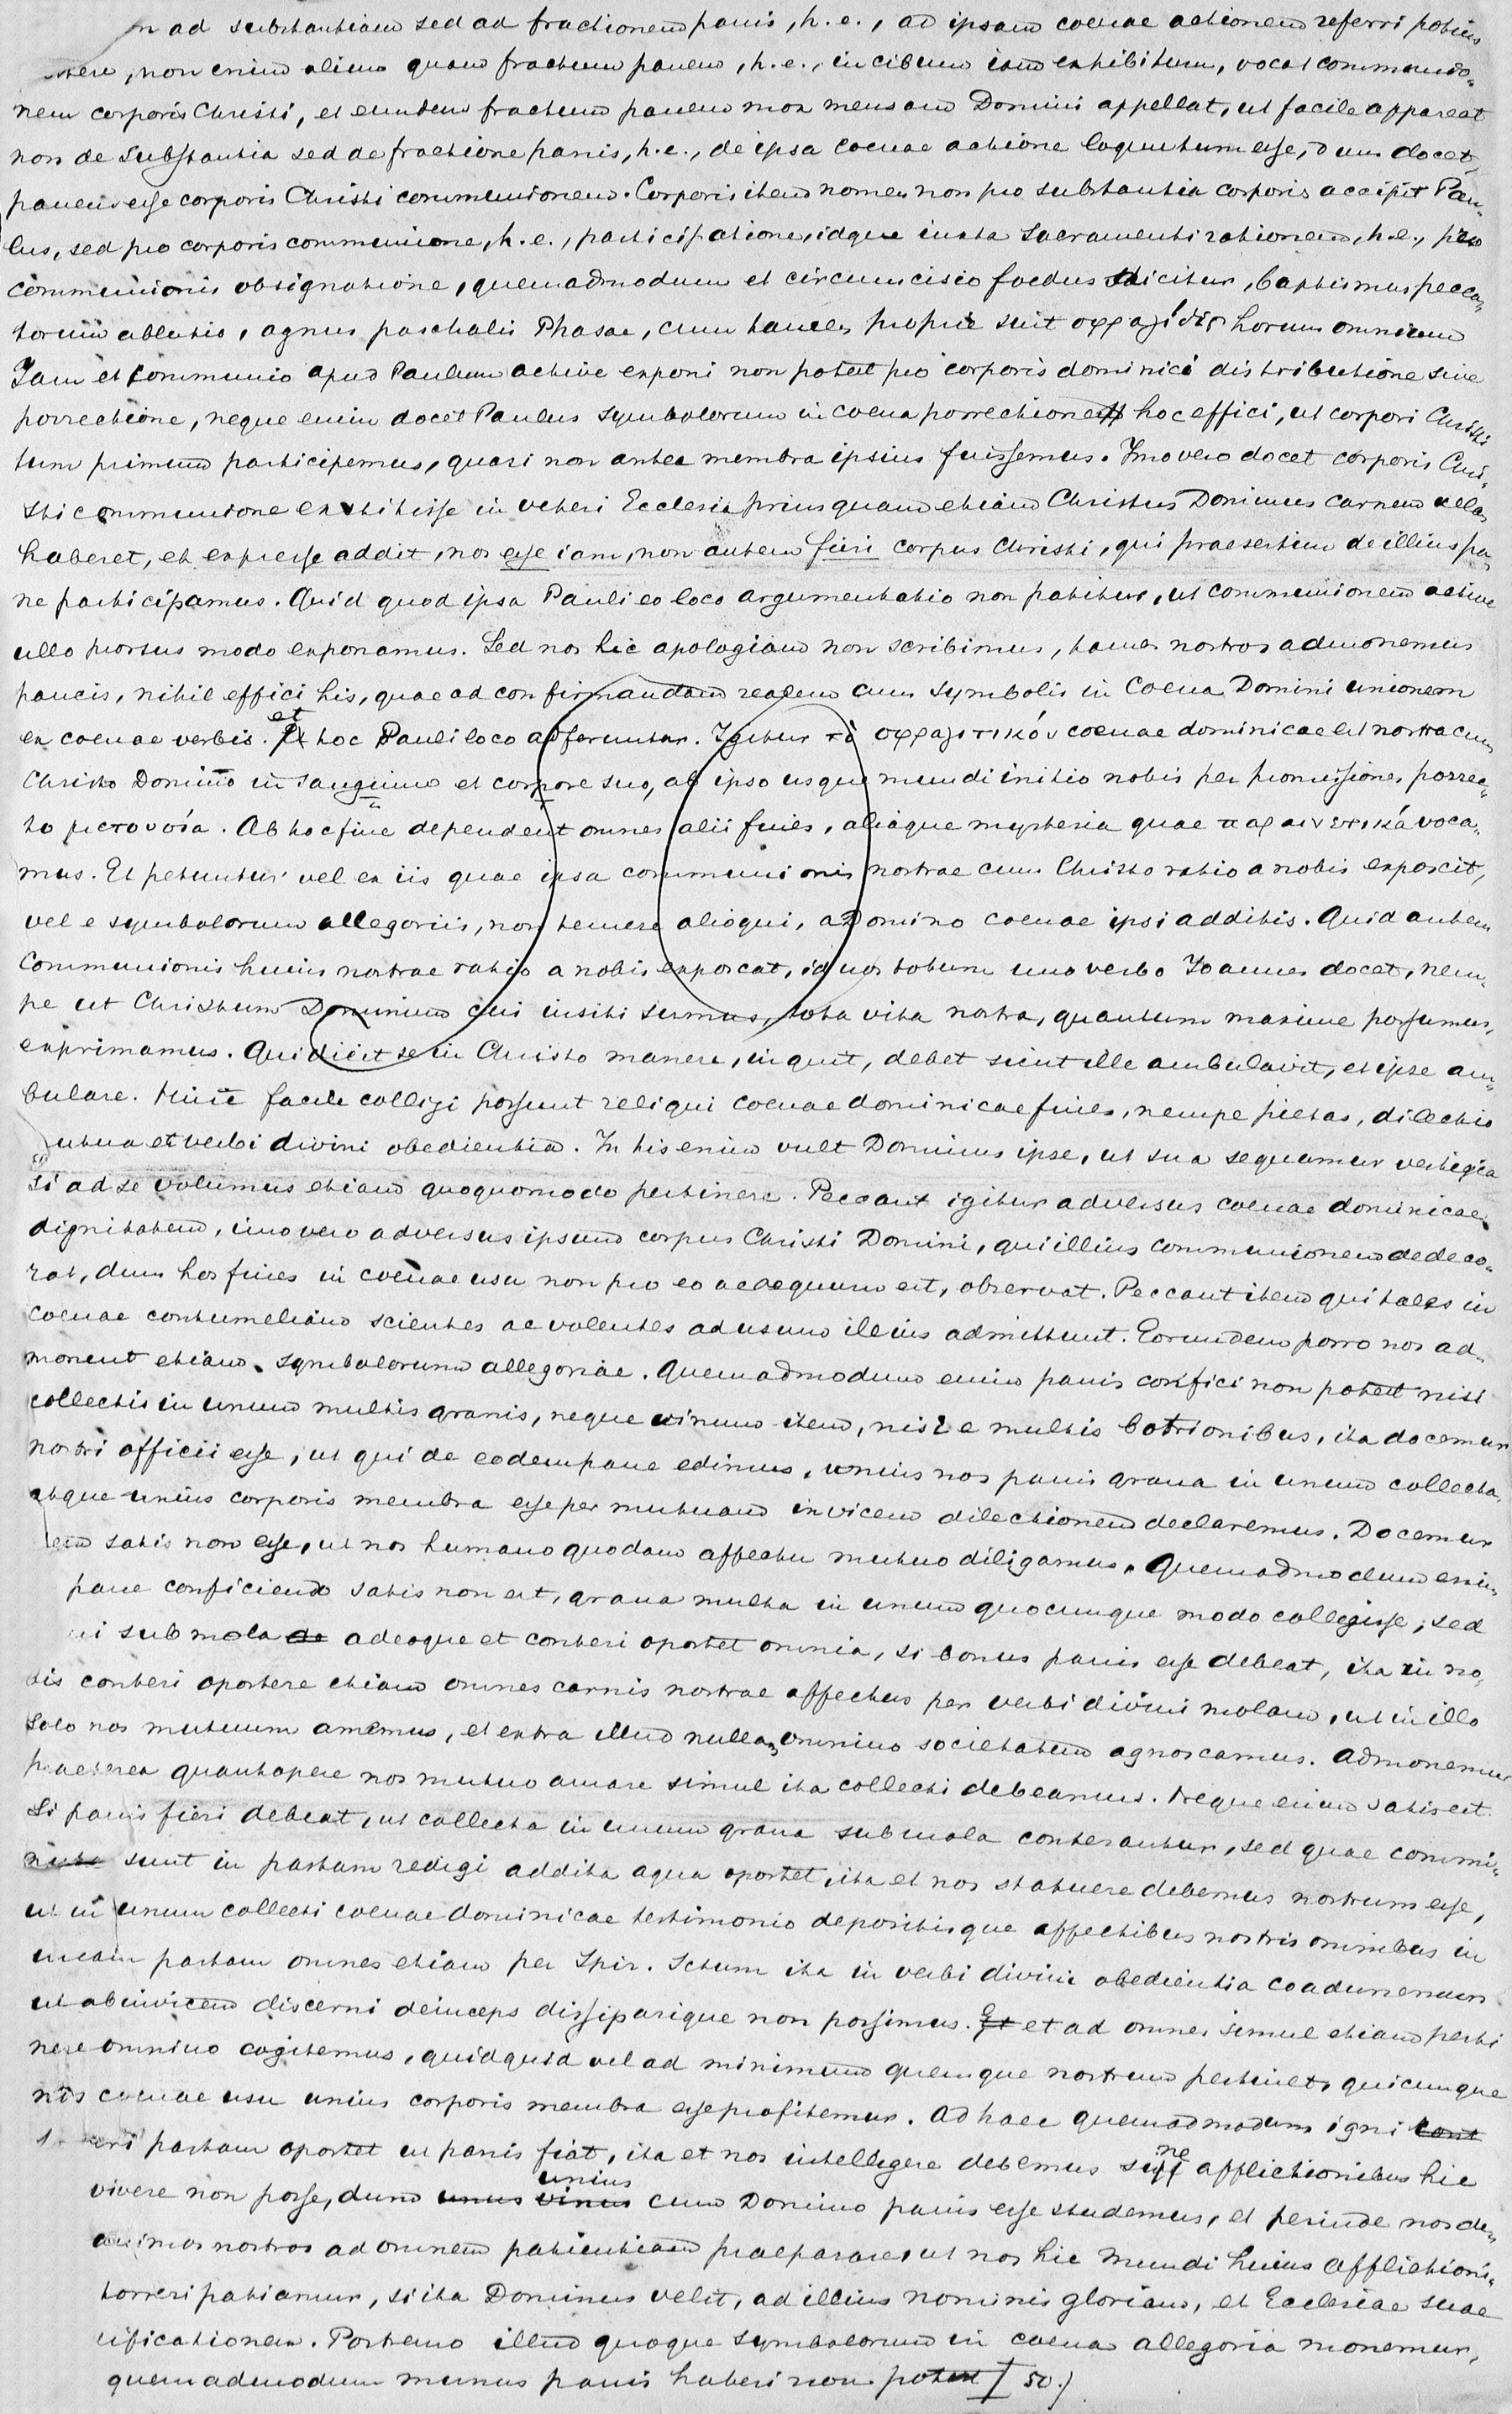 n ad substantiam sed ad fractionem panis, h. e., ad ipsam coenae actionem referri potius
, non enim alium quam fractum panem, h. e., in cibum iam exhibitum, vocat communio-
nem corporis Christi, et eundem fractum panem mox mensam Domini appellat, ut facile appareat
non de substantia sed de fractione panis, h. e., de ipsa coenae actione loquutum esse, dum docet
panem esse corporis Christi communionem. Corporis item nomen non pro substantia corporis accipit Pau-
lus, sed pro corporis communione, h. e., participatione, idque iuxta sacramenti rationem, h. e., pro
communionis obsignatione, quemadmodum et circumcisio foedus dicitur, baptismus pecca-
torum ablutio, agnus paschalis Phasae, cum tamen propriè sint σφραγίδες horum omnium
Iam et communio apud Paulum active exponi non potest pro corporis dominici distributione sive
porrectione, neque enim docet Paulus symbolorum in coena porrectione hoc effici, ut corpori Christi
tum primum participemus, quasi non antea membra ipsius fuissemus. Imo vero docet corporis Chri-
sti communione exstitisse in veteri Ecclesia prius quam etiam Christus Dominus carnem ullam
haberet, et expresse addit, nos esse iam, non autem fieri corpus Christi, qui praesertim de illius pa-
ne participamus. Quid quod ipsa Pauli eo loco argumentatio non patitur, ut communionem active
ullo prorsus modo exponamus. Sed nos hic apologiam non scribimus, tamen nostros admonemus
paucis, nihil effici his, quae ad confirmandam realem cum symbolis in Coena Domini unionem
ex coenae verbis. et hoc Pauli loco adferuntur. Igitur τὸ σφραγιστικόν coenae dominicae est nostra cum
Christo Domino in sanguine et corpore suo, ab ipso usque mundi initio nobis per promissiones porrec-
to μετουσία. Ab hoc fine dependent omnes alii fines, aliaque mysteria quae παραινετικά voca-
mus. Et petuntur vel ex iis quae ipsa communionis nostrae cum Christo ratio a nobis exposcit,
vel e symbolorum allegoriis, non temere alioqui, a Domino coenae ipsi additis. Quid autem
Communionis huius nostrae ratio a nobis exposcat, id nos totum uno verbo Ioannes docet, nem-
pe ut Christum Dominum cui insiti sumus, tota vita nostra, quantum maxime possumus,
exprimamus. Qui dicit se in Christo manere, inquit, debet sicut ille ambulavit, et ipse am-
bulare. Hinc facile colligi possunt reliqui coenae dominicae fines, nempe pietas, dilectio
mutua et verbi divini obedientia. In his enim vult Dominus ipse, ut sua sequamur vestigia
si ad se volumus etiam quoquomodo pertinere. Peccant igitur adversus coenae dominicae
dignitatem, imo vero adversus ipsum corpus Christi Domini, qui illius communionem dedeco-
rat, dum hos fines in coenae usu non pro eo ac aequum est, observat. Peccant item qui tales in
coenae contumeliam scientes ac volentes ad usum illius admittunt. Eorundem porro nos ad-
monent etiam symbolorum allegoriae. Quemadmodum enim panis confici non potest nisi
collectis in unum multis granis, neque vinum item, nisi e multis botrionibus, ita docemur
nostri officii esse, ut qui de eodem pane edimus, unius nos panis grana in unum collecta
atque unius corporis membra esse per mutuam invicem dilectionem declaremus. Docemur
 satis non esse, ut nos humano quodam affectu mutuo diligamus. Quemadmodum enim
pane conficiendo satis non est, grana multa in unum quocunque modo collegisse, sed
 sub mola de adeoque et conteri oportet omnia, si bonus panis esse debeat, ita in no-
bis conteri oportere etiam omnes carnis nostrae affectus per verbi divini molam, ut in illo
solo nos mutuum amemus, et extra illud nullam omnino societatem agnoscamus. Admonemur
praeterea quantopere nos mutuo amare simul ita collecti debeamus. Neque enim satis est
si panis fieri debeat, ut collecta in unum grana sub mola conterantur, sed quae commi-
nuta sunt in pastam redigi addita aqua oportet, ita et nos statuere debemus nostrum esse,
ut in unum collecti coenae dominicae testimonio depositisque affectibus nostris omnibus in
unam pastam omnes etiam per Spir. Sctum ita in verbi divini obedientia coadunemur
ut ab invicem discerni deinceps dissiparique non possimus. et ad omnes simul etiam perti
nere omnino cogitemus, quidquid vel ad minimum quemque nostrum pertinet, quicunque
nos coenae usu unius corporis membra esse profitemur. Ad haec quemadmodum igni cont
 pastam oportet ut panis fiat, ita et nos intelligere debemus sine afflictionibus hic
vivere non posse, dum unus unius cum Domino panis esse studemus, et perinde nos de-
 animos nostros ad omnem patientiam praeparare, ut nos hic mundi huius afflictioni-
torreri patiamur, si ita Dominus velit, ad illius nominis gloriam, et Ecclesiae suae
ificationem. Postremo illud quoque symbolorum in coena allegoria monemur,
quemadmodum munus panis haberi non potest [50.)